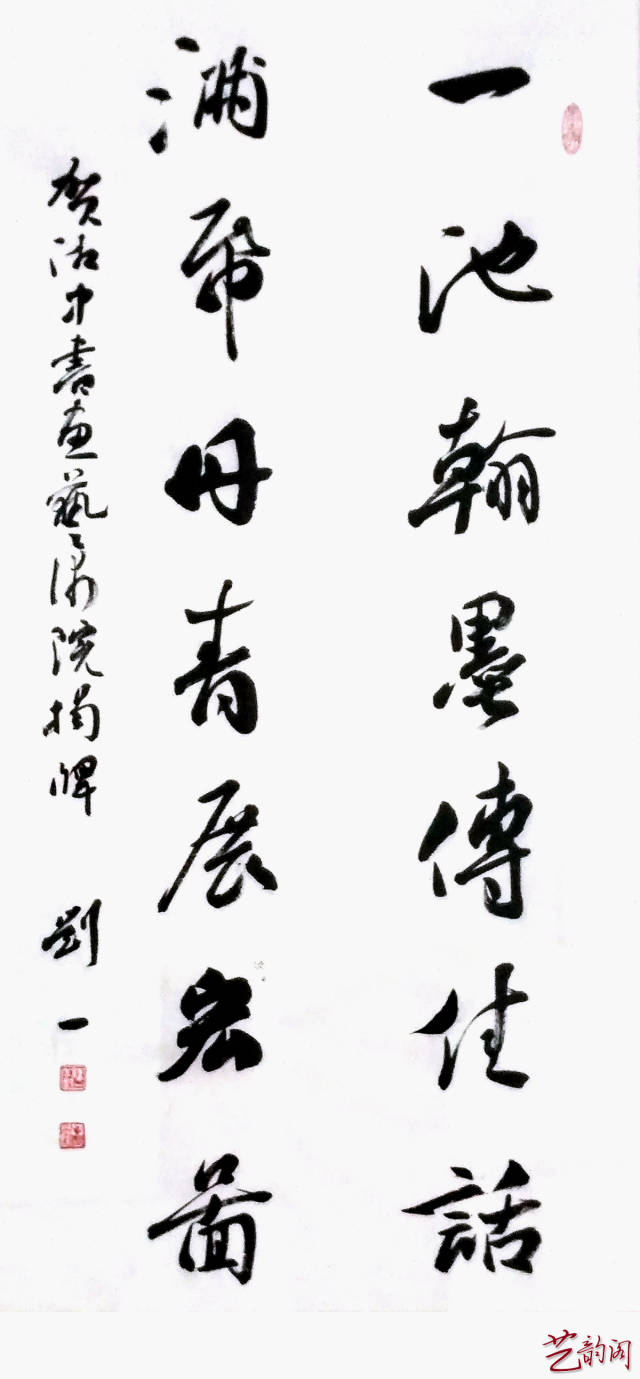 一池翰墨傳佳話
滿帋丹青展宏圖
賀沽中書画藝術院揭牌
劉一
艺韵阁